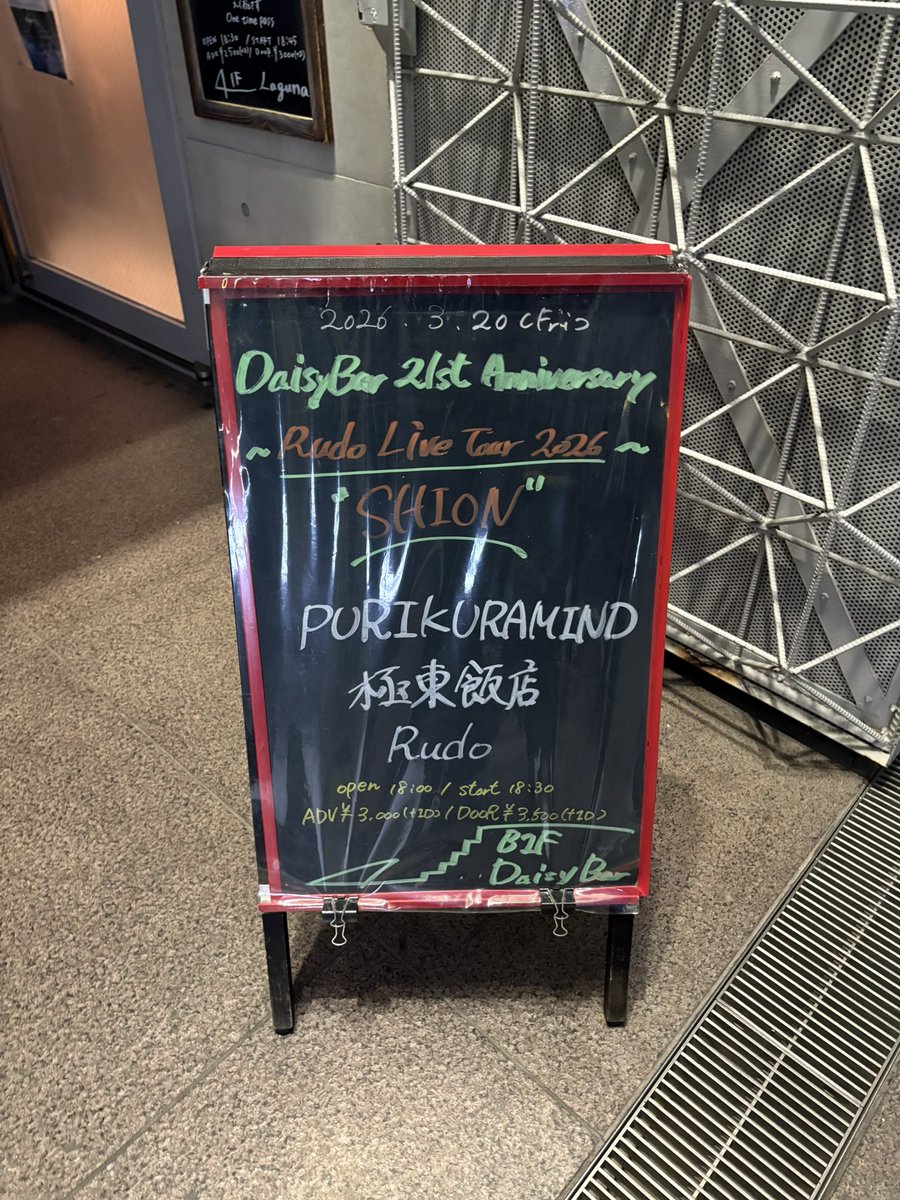 One time pass
OPEN 18:30 / START 18:45
1F Laguna
2026.3.20(Fri)
DaisyBar 21st Anniversary
~ Rudo Live Tour 2026 ~
"SHION"
PURIKURAMIND
極東飯店
Rudo
open 18:00 / start 18:30
ADV ¥3,000(+1D) / DOOR ¥3,500(+1D)
B1F
DaisyBar